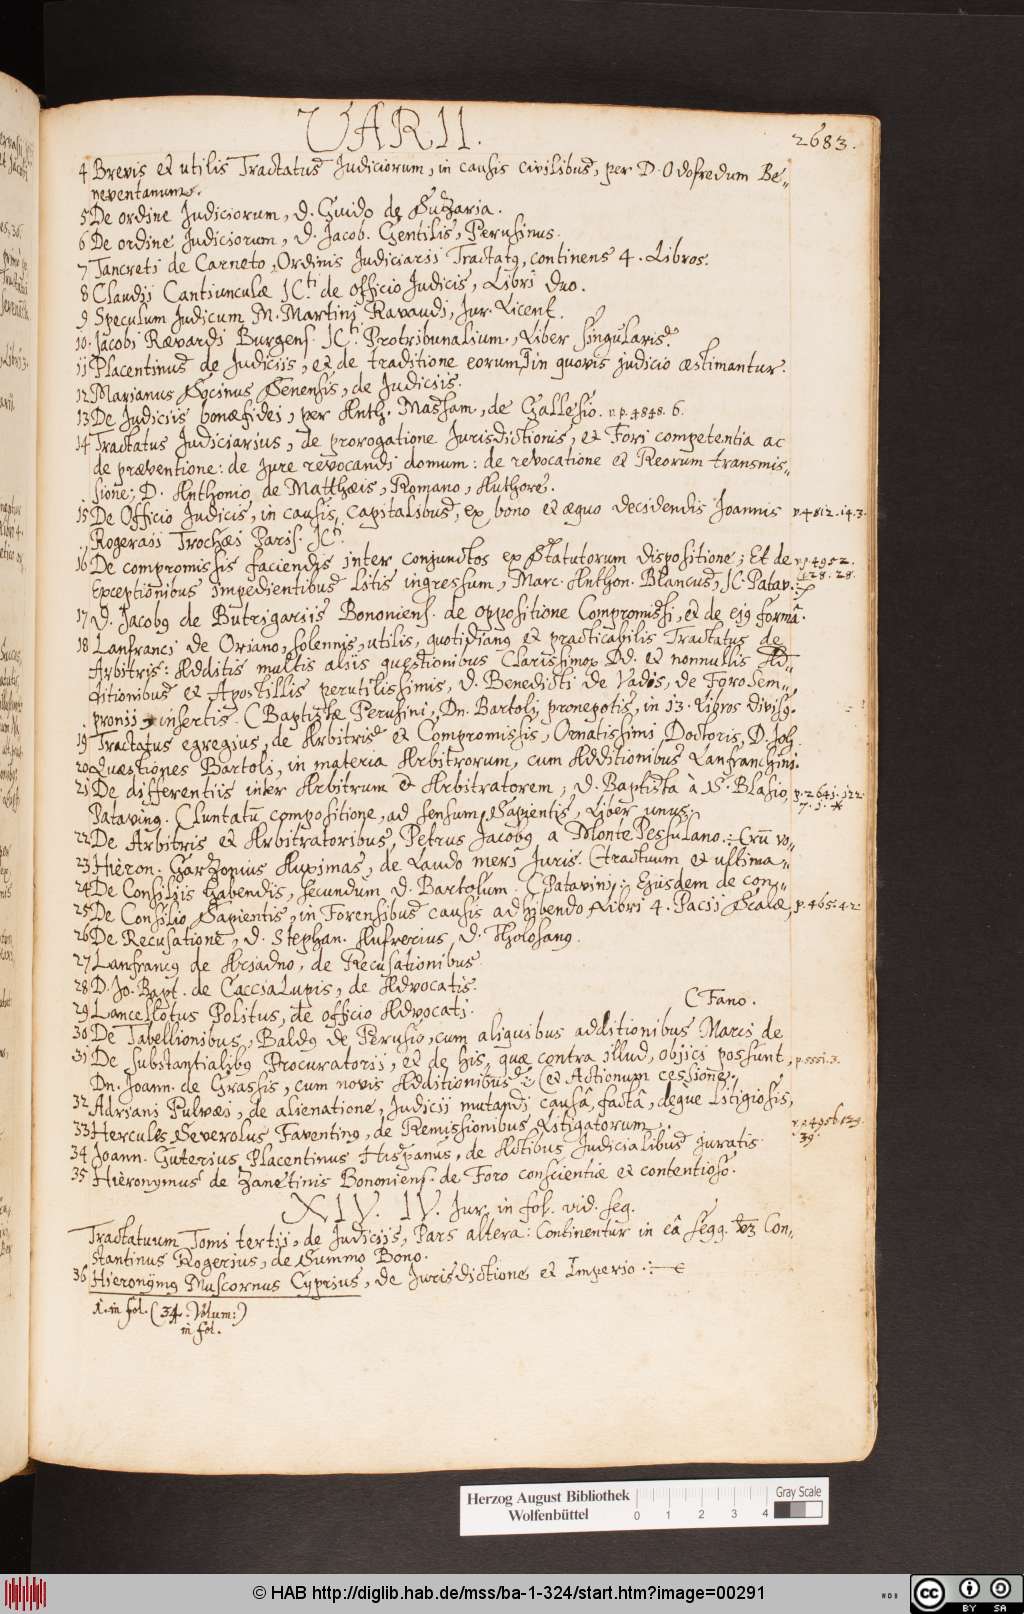 VARII.
2683.
4 Brevis et utilis Tractatus Judiciorum, in causis civilibus, per D. Odofredum Be-
neventanum.
5 De ordine Judiciorum, d. Guido de Suzaria.
6 De ordine Judiciorum, d. Jacob. Gentilis, Perusinus.
7 Tancreti de Carneto, Ordinis Judiciarii Tractatg, continens 4. Libros.
8 Claudii Cantiunculæ JC.ti de officio Judicis, Libri duo.
9 Speculum Judicum M. Martini Ravaudi, Jur. Licent.
10. Jacobi Rævardi Burgens. JC.ti Protribunalium, Liber singularis.
11 Placentinus de Judiciis, et de traditione eorum, in quovis judicio æstimantur.
12 Marianus Socinus Senensis, de Judiciis.
13 De Judiciis bonæfidei, per Anth. Massam, de Gallesio. v. p. 4848. 6.
14 Tractatus Judiciarius, de prorogatione Jurisdictionis, et Fori competentia ac
de præventione: de Jure revocandi domum: de revocatione et Reorum transmis-
sione; D. Anthonio de Matthæis, Romano, Authore.
15 De Officio Judicis, in causis Capitalibus, ex bono et æquo decidendis Joannis v. p. 4812. 14. 3.
Rogeraii Trochæi Paris. JC.ti
16 De compromissis faciendis inter conjunctos ex Statutorum dispositione; Et de v. p. 4952.
428. 28.
Exceptionibus impedientibus Litis ingressum, Marc. Anthon. Blancus, JC. Patav.
17 D. Jacobg de Butrigariis Bononiens. de oppositione Compromissi, et de ejg formâ.
18 Lanfranci de Oriano, solennis, utilis, quotidiang et practicabilis Tractatus de
Arbitris: Additis multis aliis quæstionibus Clarissimor. Dd. et nonnullis Ad-
ditionibus et Apostillis perutilissimis, d. Benedicti de Vadis, de Foro Sem-
pronii insertis. (Baptistæ Perusini, Dn. Bartoli pronepotis, in 13. Libros divisg.
19 Tractatus egregius, de Arbitris et Compromissis, Ornatissimi Doctoris, D. Joh.
20 Quæstiones Bartoli, in materia Arbitrorum, cum Additionibus Lanfranchini.
21 De differentiis inter Arbitrum & Arbitratorem, d. Baptista à S. Blasio, p. 2641. 122.
7. 1. *
Pataving. (luntatū compositione, ad sensum Sapientis, Liber unus.
22 De Arbitris et Arbitratoribus, Petrus Jacobg a Monte Pessulano. (rū vo-
23 Hieron. Garzonius Auximas, de Laudo meri Juris. (tractuum et ultima-
24 De Consiliis habendis, secundum d. Bartolum. (Patavini: Ejusdem de con-
25 De Consilio Sapientis, in Forensibus causis adhibendo Libri 4. Pacis Scalæ, p. 465. 42
26 De Recusatione, d. Stephan. Aufrerius, d. Tholosang.
27 Lanfrancg de Ariadno, de Recusationibus
28 D. Jo. Bapt. de CacciaLupis, de Advocatis.
29 Lancellotus Politus, de officio Advocati. (Fano.
30 De Tabellionibus, Baldg de Perusio, cum aliquibus additionibus Marci de
31 De substantialibg Procuratorii, et de his, quæ contra illud, objici possunt, p. 5551. 3.
Dn. Joann. de Grassis, cum novis Additionibus. (et Actionum cessione,
32 Adriani Pulvæi, de alienatione, Judicii mutandi causâ, factâ, deque Litigiosis,
33 Hercules Severolus Faventing, de Remissionibus Litigatorum. v. p. 4956. 139.
39.
34 Joann. Guterius Placentinus Hispanus, de Actibus Judicialibus juratis
35 Hieronymus de Zanetinis Bononiens. de Foro conscientiæ et contentioso.
XIV. IV. Jur. in fol. vid. seq.
Tractatuum Tomi tertii, de Judiciis, Pars altera: Continentur in eâ seqq. Con-
stantinus Rogerius, de Summo Bono.
36 Hieronÿmg Muscornus Cyprius, de Jurisdictione et Imperio.
in fol. (34. Volum:)
in fol.
Herzog August Bibliothek
Wolfenbüttel
0 1 2 3 4
Gray Scale
© HAB http://diglib.hab.de/mss/ba-1-324/start.htm?image=00291
cc BY SA